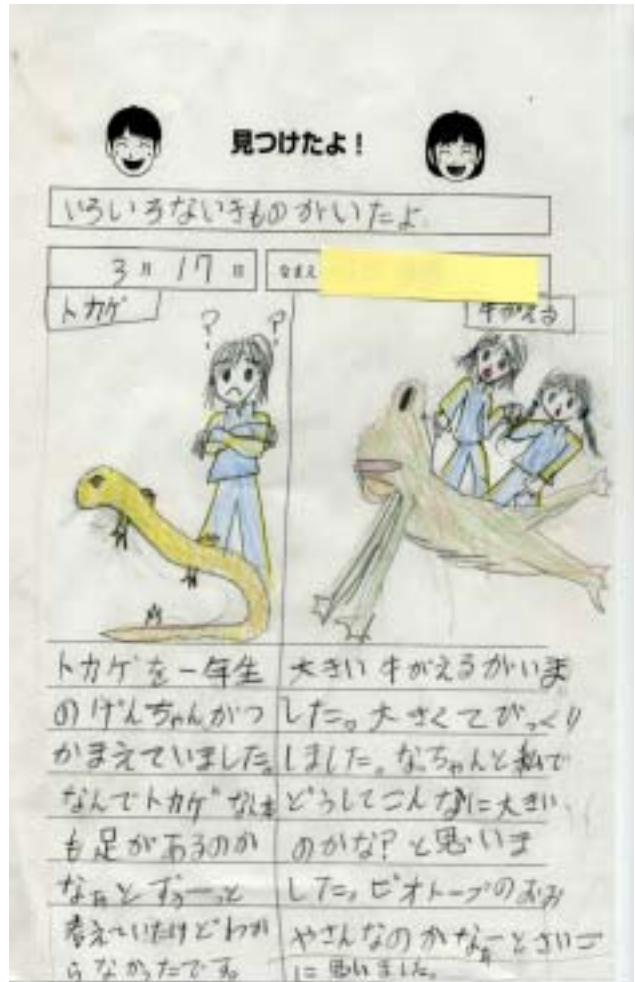 見つけたよ！
いろいろないきものがいたよ
3月17日
なまえ
トカゲ
牛がえる
トカゲを一年生
のげんちゃんがつ
かまえていました。
なんでトカゲなんま
も足があるのか
なぁとずぅーっと
考えていたけどわか
らなかったです。
大きい牛がえるがいま
した。大きくてびっくり
しました。なっちゃんと私で
どうしてこんなに大きい
のかな？と思いま
した。ビオトープのおお
やさんなのかなぁーとさいご
に思いました。